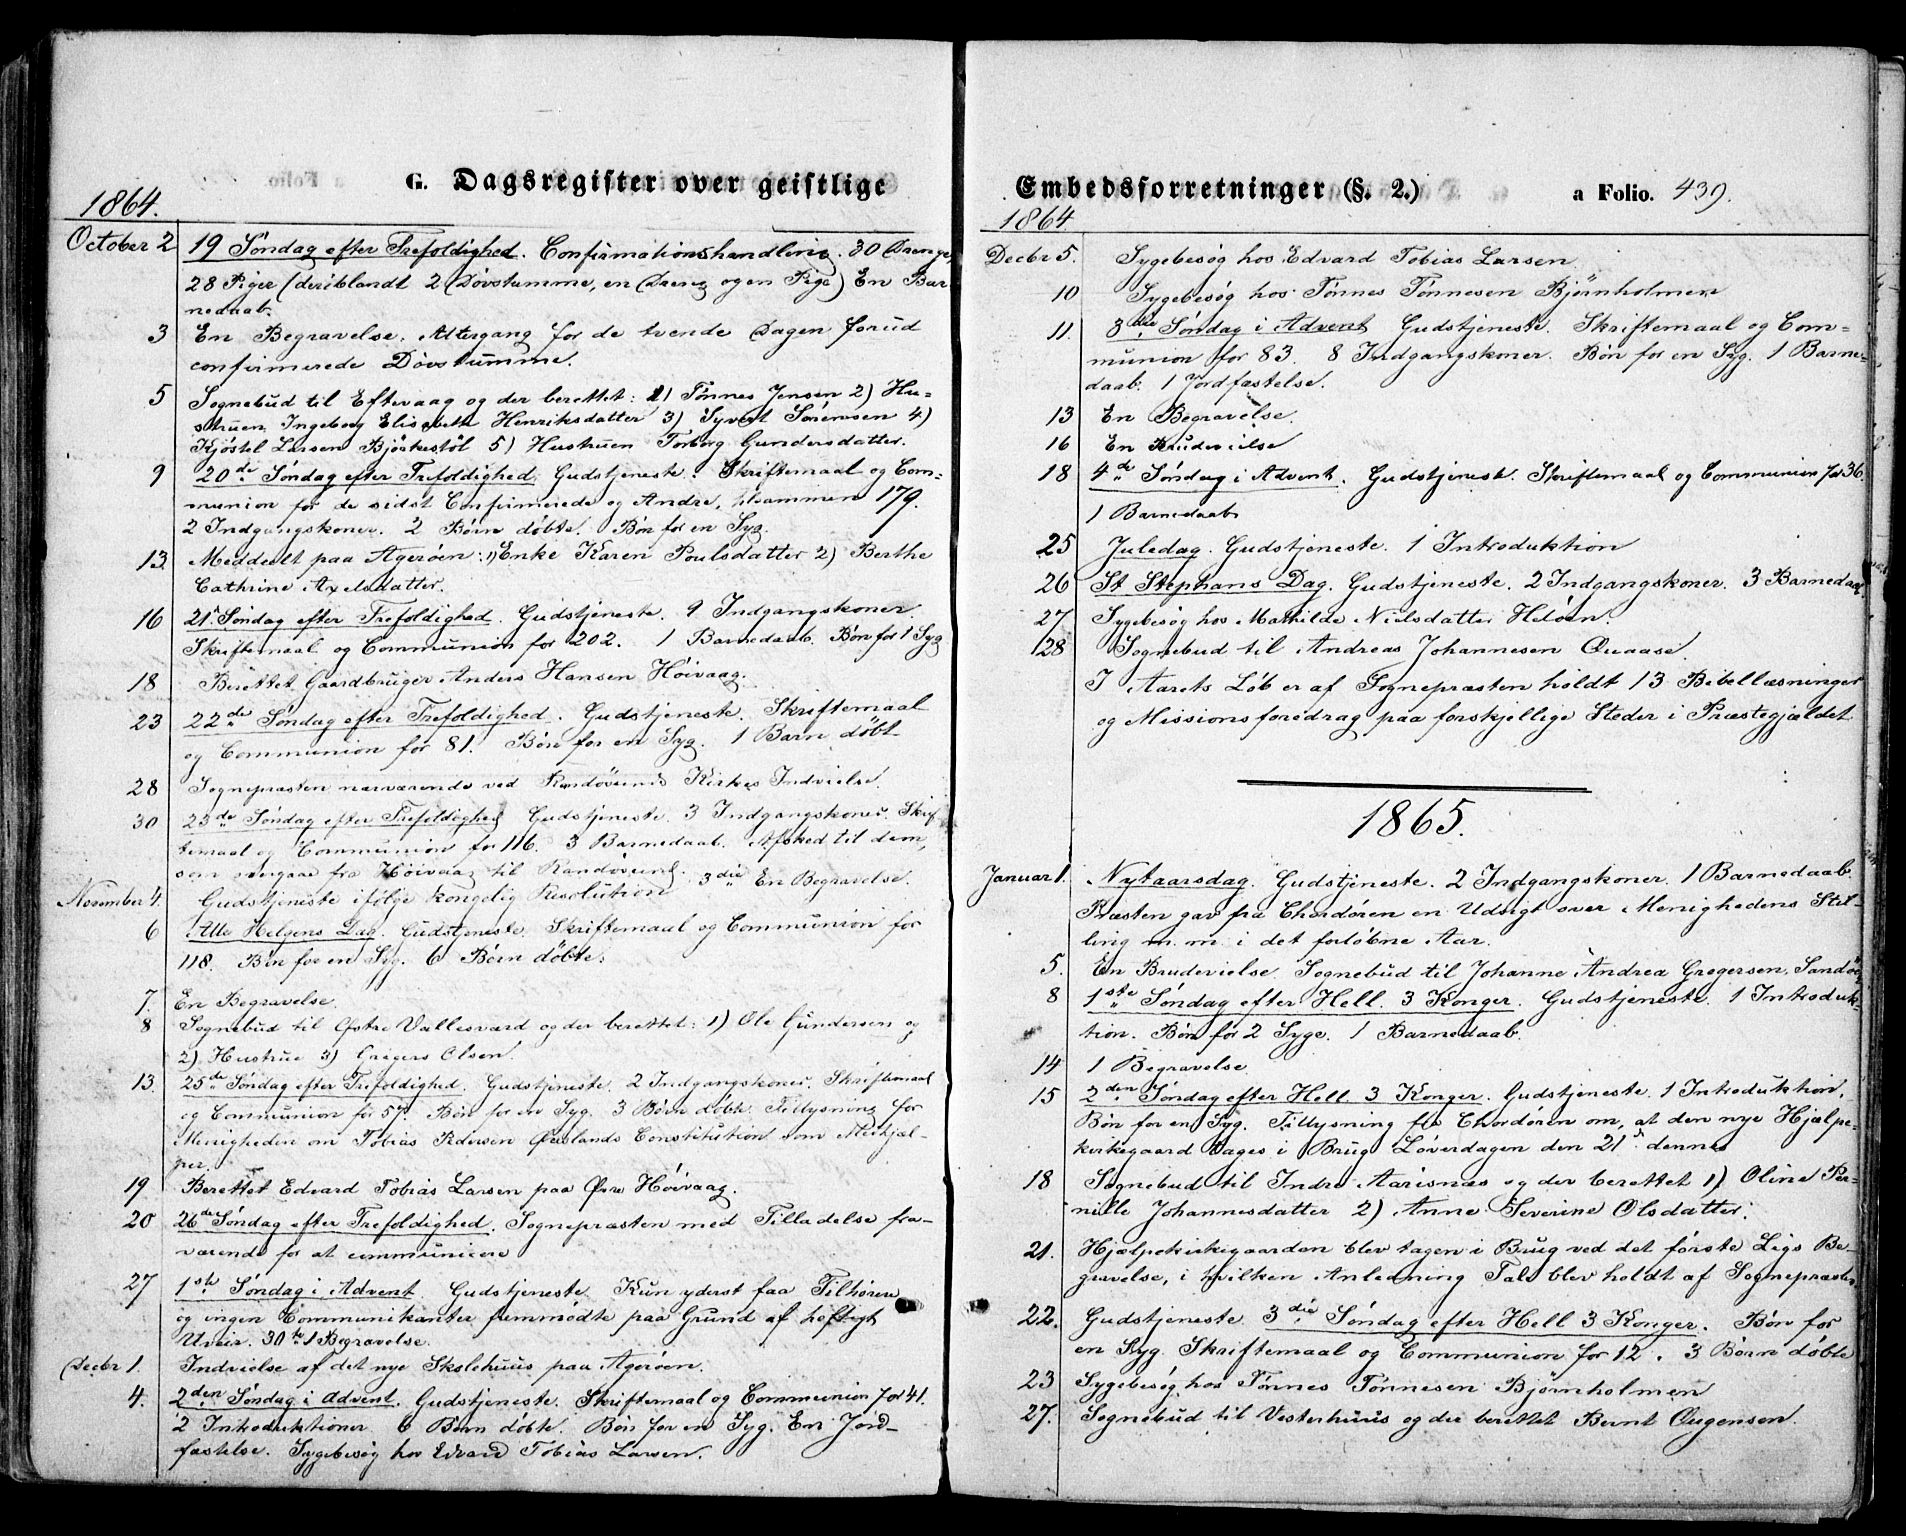 G. Dagsregister over geistlige
1864.
October 2 19 Søndag efter Trefoldighed. Confirmationshandling. 30 Drenge,
28 Piger (deriblandt 2 Døvstumme, en Dreng og en Pige) En Bar
nedaab.
3 En Begravelse. Altergang for de tvende Dagen forud
confirmerede Døvstumme.
5 Sognebud til Eftevaag og der berettet: 1) Tønnes Jensen 2) Hu-
struen Ingeborg Elisabeth Henriksdatter 3) Syvert Sørensen 4)
Kjøstel Larsen Bjørkestøl 5) Hustruen Torborg Gundersdatter.
9 20de Søndag efter Trefoldighed. Gudstjeneste. Skriftemaal og Com-
munion for de sidst Confirmerede og Andre, tilsammen 179.
2 Indgangskoner. 2 Børn døbte. Bøn for en Syg.
13. Meddeelt paa Agerøen: 1) Enke Karen Poulsdatter 2) Berthe
Cathrine Axelsdatter.
16 21. Søndag efter Trefoldighed. Gudstjeneste. 9 Indgangskoner.
Skriftemaal og Communion for 202. 1 Barnedaab. Bøn for 1 Syg
18 Berettet Gaardbruger Anders Hansen Høivaag.
23 22de Søndag efter Trefoldighed. Gudstjeneste. Skriftemaal
og Communion for 81. Bøn for en Syg. 1 Barn døbt
28 Sognepræsten nærværende ved Randøsunds Kirkes Indvielse.
30 23de Søndag efter Trefoldighed Gudstjeneste. 3 Indgangskoner. Skrif
temaal og Communion for 116. 3 Barnedaab. Afsked til dem,
som overgaae fra Høivaag til Randøsund
November 4. Gudstjeneste ifølge kongelig Resolution 3die En Begravelse.
6 Alle Helgens Dag. Gudstjeneste. Skriftemaal og Communion for
118. Bøn for en Syg. 6 Børn døbte.
7. En Begravelse.
8 Sognebud til Østre Vallesværd og der berettet: 1) Ole Gundersen og
2) Hustrue 3) Gregers Olsen.
13. 25de Søndag efter Trefoldighed. Gudstjeneste. 2 Indgangskoner. Skriftemaal
og Communion for 57. Bøn for en Syg. 3 Børn døbte. Tillysning for
Menigheden om Tobias Pedersen Constitution som Medhjæl-
per.
19 Berettet Edvard Tobias Larsen paa Øvre Høivaag.
20 26de Søndag efter Trefoldighed. Sognepræsten med Tilladelse fra-
værende for at communicere
27 1ste Søndag i Advent. Gudstjeneste. Kun yderst faa Tilhørere
og ingen Communikanter fremmødte paa Grund af heftigt
Uveir. 30te 1 Begravelse.
Decbr 1. Indvielse af det nye Skolehuus paa Agerøen.
4. 2den Søndag i Advent. Gudstjeneste. Skriftemaal og Communion for 41.
2 Introduktioner 6 Børn døbte. Bøn for en Syg. En Jord-
fæstelse. Sygebesøg hos Edvard Tobias Larsen.
Embedsforretninger (§. 2.) a Folio. 439.
1864
Decbr 5. Sygebesøg hos Edvard Tobias Larsen
10 Sygebesøg hos Tønnes Tønnesen Bjørnholmen
11. 3die Søndag i Advent Gudstjeneste. Skriftemaal og Com-
munion for 83. 8 Indgangskoner. Bøn for en Syg. 1 Barne-
daab. 1 Jordfæstelse.
13 En Begravelse.
16 En Brudevielse
18 4de Søndag i Advent. Gudstjeneste. Skriftemaal og Communion for 36.
1 Barnedaab
25 Juledag. Gudstjeneste. 1 Introduktion
26 St Stephans Dag. Gudstjeneste. 2 Indgangskoner. 3 Barnedaab.
27 Sygebesøg hos Mathilde Nielsdatter Heløen.
28 Sognebud til Andreas Johannesen Quaase.
I Aarets Løb er af Sognepræsten holdt 13 Bibellæsninger
og Missionsforedrag paa forskjellige Steder i Præstegjældet
1865.
Januar 1. Nytaarsdag. Gudstjeneste. 2 Indgangskoner. 1 Barnedaab.
Præsten gav fra Chordøren en Udsigt over Menighedens Stil-
ling m. m. i det forløbne Aar.
5. En Brudevielse. Sognebud til Johanne Andrea Gregersen, Sandøen
8 1ste Søndag efter Hell. 3 Konger. Gudstjeneste. 1 Introduk-
tion. Bøn for 2 Syge. 1 Barnedaab.
14 1 Begravelse
15 2den Søndag efter Hell. 3 Konger. Gudstjeneste. 1 Introduktion.
Bøn for en Syg. Tillysning fra Chordøren om, at den nye Hjælpe-
kirkegaard tages i Brug Løverdagen den 21de dennes
18 Sognebud til Indre Aarisnæs og der berettet 1) Oline Per-
nille Johannesdatter 2) Anne Severine Olsdatter.
21. Hjælpekirkegaarden blev tagen i Brug ved det første Ligs Be-
gravelse, i hvilken Anledning Tale blev holdt af Sognepræsten
22. Gudstjeneste 3die Søndag efter Hell 3 Konger. Bøn for
en Syg. Skriftemaal og Communion for 12. 3 Børn døbte
23 Sygebesøg hos Tønnes Tønnesen Bjørnholmen
27. Sognebud til Vesterhuus og der berettet Bernt Augensen.